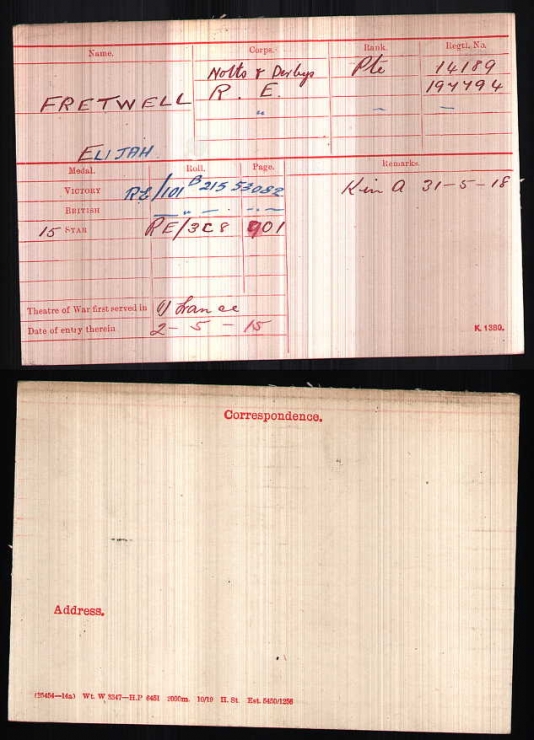 Name. Corps. Rank. Regtl. No.
Notts & Derbys Pte 14189
FRETWELL R. E. 197794
" — —
ELIJAH
Medal. Roll. Page. Remarks.
VICTORY RE/101 B 215 53082 K in A 31-5-18
BRITISH — " — — " —
15 STAR RE/3C8 901
Theatre of War first served in (1) France
Date of entry therein 2-5-15
K. 1380.
Correspondence.
Address.
(25454—14a) Wt. W 3347—H.P 6481 2000m. 10/19 H. St Est. 5450/1256